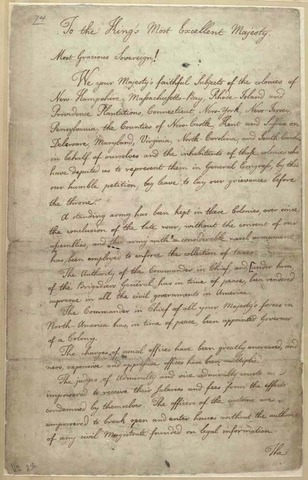 74
To the King's Most Excellent Majesty.
Most Gracious Sovereign!
We your Majesty's faithful Subjects of the colonies of
New-Hampshire, Massachusetts-Bay, Rhode Island and
Providence Plantations, Connecticut, New-York, New-Jersey,
Pensylvania, the Counties of New-Castle, Kent and Sussex on
Delaware, Maryland, Virginia, North Carolina, and South Carolina
in behalf of ourselves and the inhabitants of those colonies who
have deputed us to represent them in General Congress, by this
our humble petition, beg leave to lay our grievances before
the throne.
A standing army has been kept in these Colonies, ever since
the conclusion of the late war, without the consent of our
assemblies, and this army with a considerable naval armament
has been employed to enforce the collection of taxes.
The Authority of the Commander in Chief, and under him
of the Brigadiers General, has in time of peace, been rendered
supreme in all the civil governments in America.
The Commander in Chief of all your Majesty's forces in
North America has, in time of peace, been appointed Governor
of a Colony.
The charges of usual offices have been greatly encreased, and
new, expensive and oppressive offices have been multiplied.
The judges of Admiralty and vice admiralty courts are
impowered to receive their salaries and fees from the effects
condemned by themselves. The officers of the customs are
empowered to break open and enter houses without the authority
of any civil Magistrate founded on legal information.
The